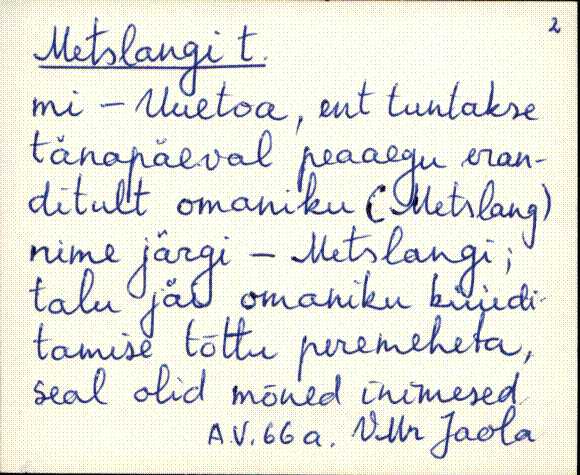 2
Metslangi t.
mi - Uuetoa, ent tuntakse
tänapäeval peaaegu eran-
ditult omaniku (Metslang)
nime järgi - Metslangi;
talu jäi omaniku küüdi-
tamise tõttu peremeheta,
seal olid mõned inimesed
A.V. 66 a. V.Mr Jaola